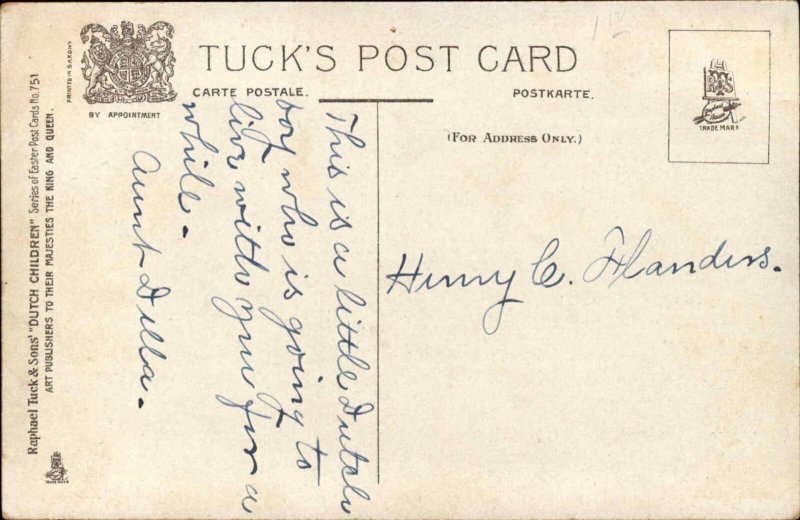 PRINTED IN SAXONY
BY APPOINTMENT
TUCK'S POST CARD
CARTE POSTALE.
POSTKARTE.
(FOR ADDRESS ONLY.)
TRADE MARK
Raphael Tuck & Sons' "DUTCH CHILDREN" Series of Easter Post Cards No. 751
ART PUBLISHERS TO THEIR MAJESTIES THE KING AND QUEEN.
This is a little Dutch
boy who is going to
live with you for a
while.
Aunt Della.
Henry C. Flanders.